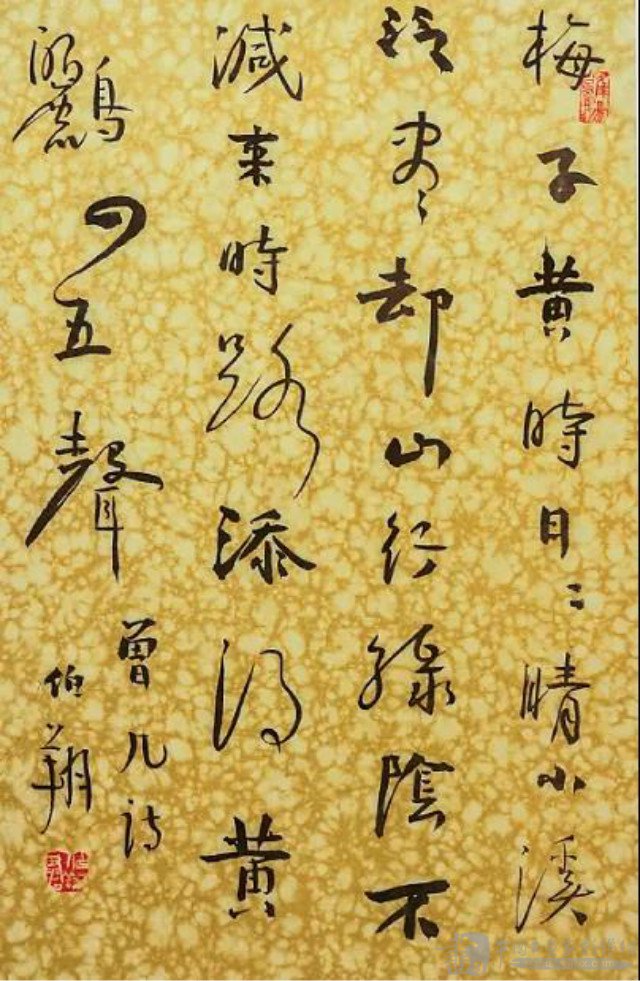 梅子黄時日〻晴小溪
泛尽却山行綠陰不
減来時路添得黄
鸝四五聲
曾几詩
伯翔